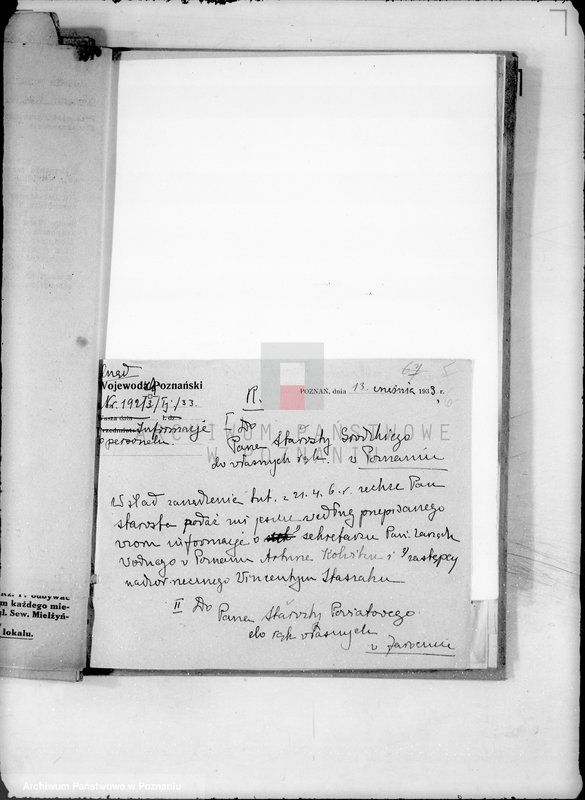 Urząd
Wojewoda Poznański
Nr. 192/3/Tj./33.
POZNAŃ, dnia 13. września 1933. r.
67 5
Wasza data L. dz.
Przedmiot: Informacje
o personelu
P.
I. Do
Pana Starosty Grodzkiego
do własnych rąk.
w Poznaniu
W ślad zarządzenia tut. z 21.4. b.r. zechce Pan
starosta podać mi jeszcze według przepisanego
wzoru informacje o sekretarzu Pań. Zarządu
Wodnego w Poznaniu Arturze i zastępcy
nadzor. rzecznego Wincentym Stasiaku
II Do
Pana Starosty Powiatowego
do rąk własnych
w Jarocinie
odbywać
m każdego mie-
gl. Sew. Mielżyń-
lokalu.
ARCHIWUM PAŃSTWOWE
W POZNANIU
Archiwum Państwowe w Poznaniu